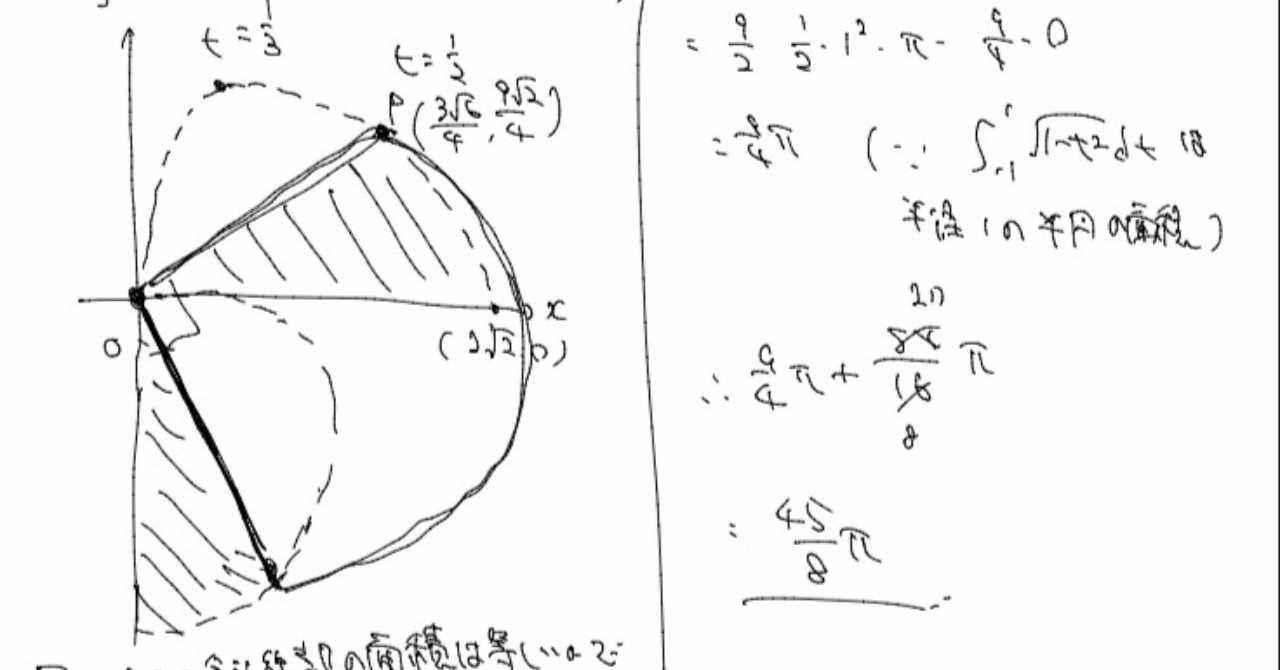 t = 1/3
t = 1/2
P (3√6/4, 9√2/4)
x
O
(2√2, 0)
の面積は等しいので
= 9/2 · 1/2 · 1² · π - 9/4 · 0
= 9/4 π (∵ ∫₋₁¹ √(1-t²) dt は
半径1の半円の面積)
∴ 9/4 π + π
8
= 45/8 π